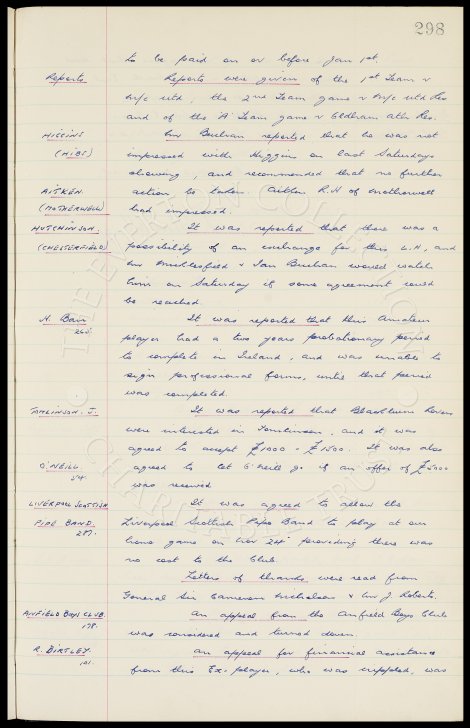 298
to be paid on or before Jan 1st.
Reports Reports were given of the 1st Team v
M/c Utd, the 2nd Team game v M/c Utd Res
and of the 'A' Team game v Oldham Ath Res.
HIGGINS Mr Buchan reported that he was not
(HIBS) impressed with Higgins on last Saturdays
showing, and recommended that no further
AITKEN action be taken. Aitken R.H of Motherwell
(MOTHERWELL) had impressed.
HUTCHINSON. It was reported that there was a
(CHESTERFIELD) possibility of an exchange for this L.H, and
Mr Micklesfield & Ian Buchan would watch
him on Saturday if some agreement could
be reached.
H. Barr It was reported that this Amateur
player had a two years probationary period
to complete in Ireland, and was unable to
sign professional forms, until that period
was completed.
TOMLINSON. J. It was reported that Blackburn Rovers
were interested in Tomlinson, and it was
agreed to accept £1000 - £1500. It was also
O'NEILL. agreed to let O'Neill go if an offer of £5000
54. was received
LIVERPOOL SCOTTISH It was agreed to allow the
PIPE BAND. Liverpool Scottish Pipe Band to play at our
287. home game on Nov 24th providing there was
no cost to the Club.
Letters of thanks were read from
General Sir Cameron Nicholson & Mr J. Roberts.
ANFIELD BOYS CLUB. An appeal from the Anfield Boys Club
178. was considered and turned down.
R. BIRTLEY. An appeal for financial assistance
101. from this Ex-player, who was crippled, was
THE EVERTON COLLECTION
CHARITABLE TRUST